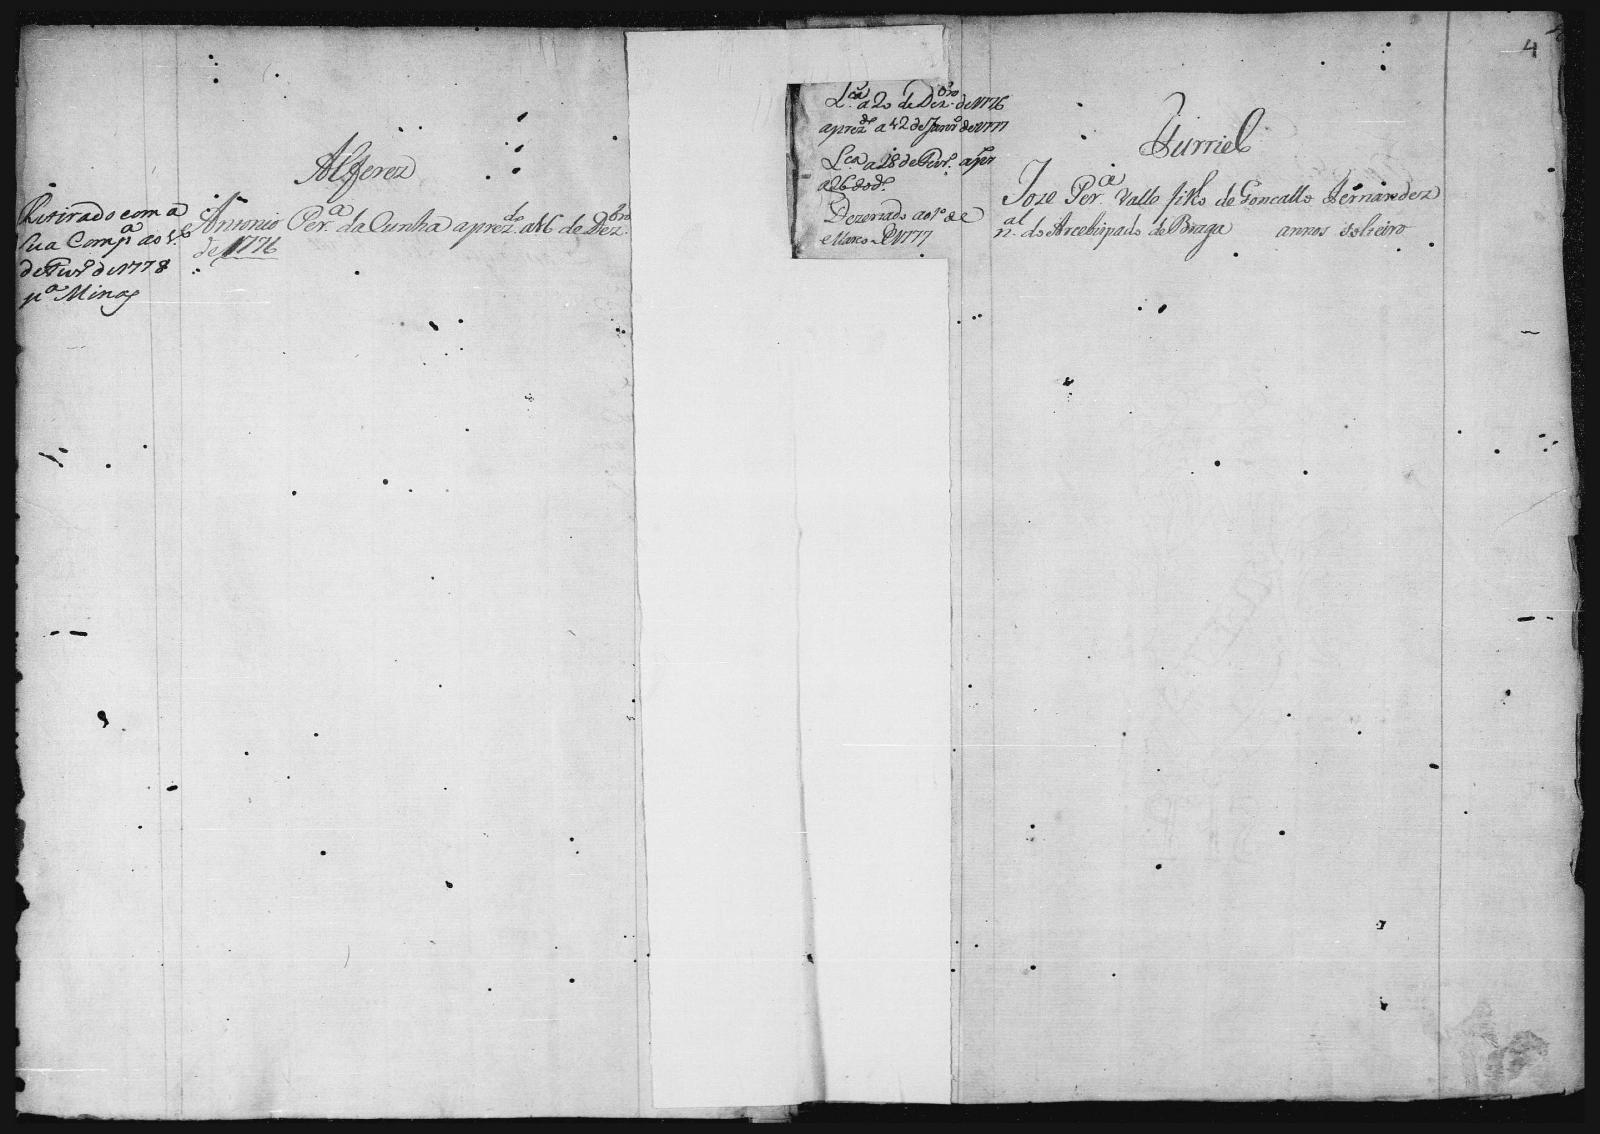 Alferez
Retirado com a
sua Comp.a ao 1.o
de Fevr.o de 1778
p.a Minas
Antonio Per.a da Cunha aprez.do a 16 de Dez.bro
de 1776
4
L.ca a 20 de Dez.bro de 1776
aprez.do a 12 de Janr.o de 1777
L.ca a 18 de Fevr.o aprez
a 26 do d.o
Dezertado ao 1.o de
Março de 1777
Furriel
Joze Per.a Valle filho de Goncallo Fernandez
n.al do Arcebispado de Braga annos solteiro